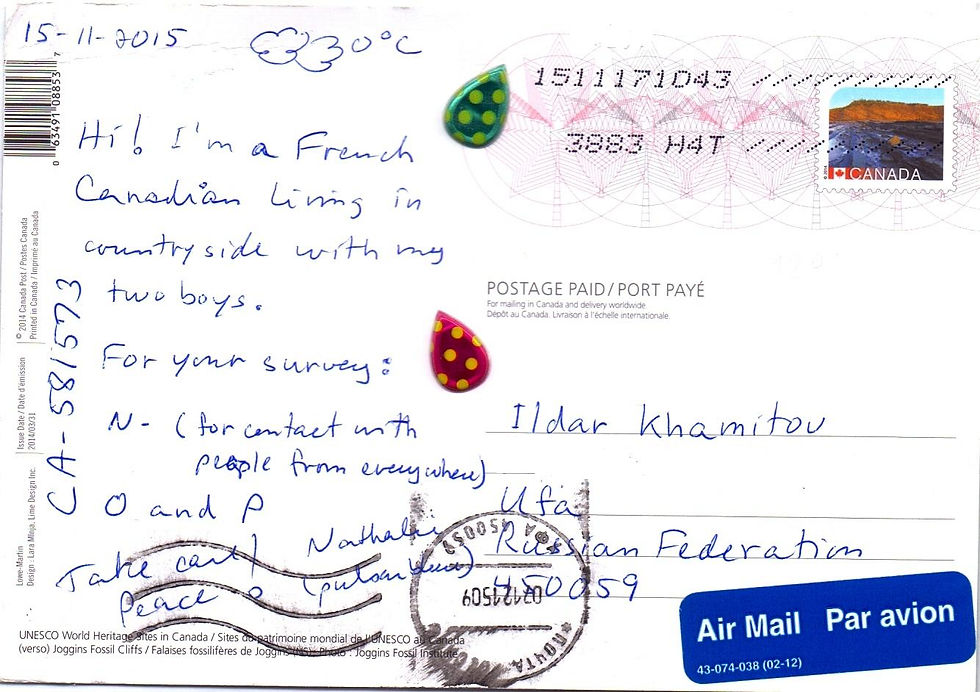 15-11-2015
30°C
Hi! I'm a French
Canadian living in
countryside with my
two boys.
For your survey:
N- (for contact with
people from everywhere)
O and P
Take care!
Peace
Nathalie
CA-581573
0 63491 08853 7
© 2014 Canada Post / Postes Canada
Printed in Canada / Imprimé au Canada
Issue Date / Date d'émission
2014/03/31
Lowe-Martin
Design : Lara Minja, Lime Design Inc.
1511171043
3883 H4T
CANADA
POSTAGE PAID / PORT PAYÉ
For mailing in Canada and delivery worldwide.
Dépôt au Canada. Livraison à l'échelle internationale.
Ildar Khamitov
Ufa
Russian Federation
450059
УФА 450059
ПОЧТА
Air Mail Par avion
43-074-038 (02-12)
UNESCO World Heritage Sites in Canada / Sites du patrimoine mondial de l'UNESCO au Canada
(verso) Joggins Fossil Cliffs / Falaises fossilifères de Joggins (NS). Photo : Joggins Fossil Institute